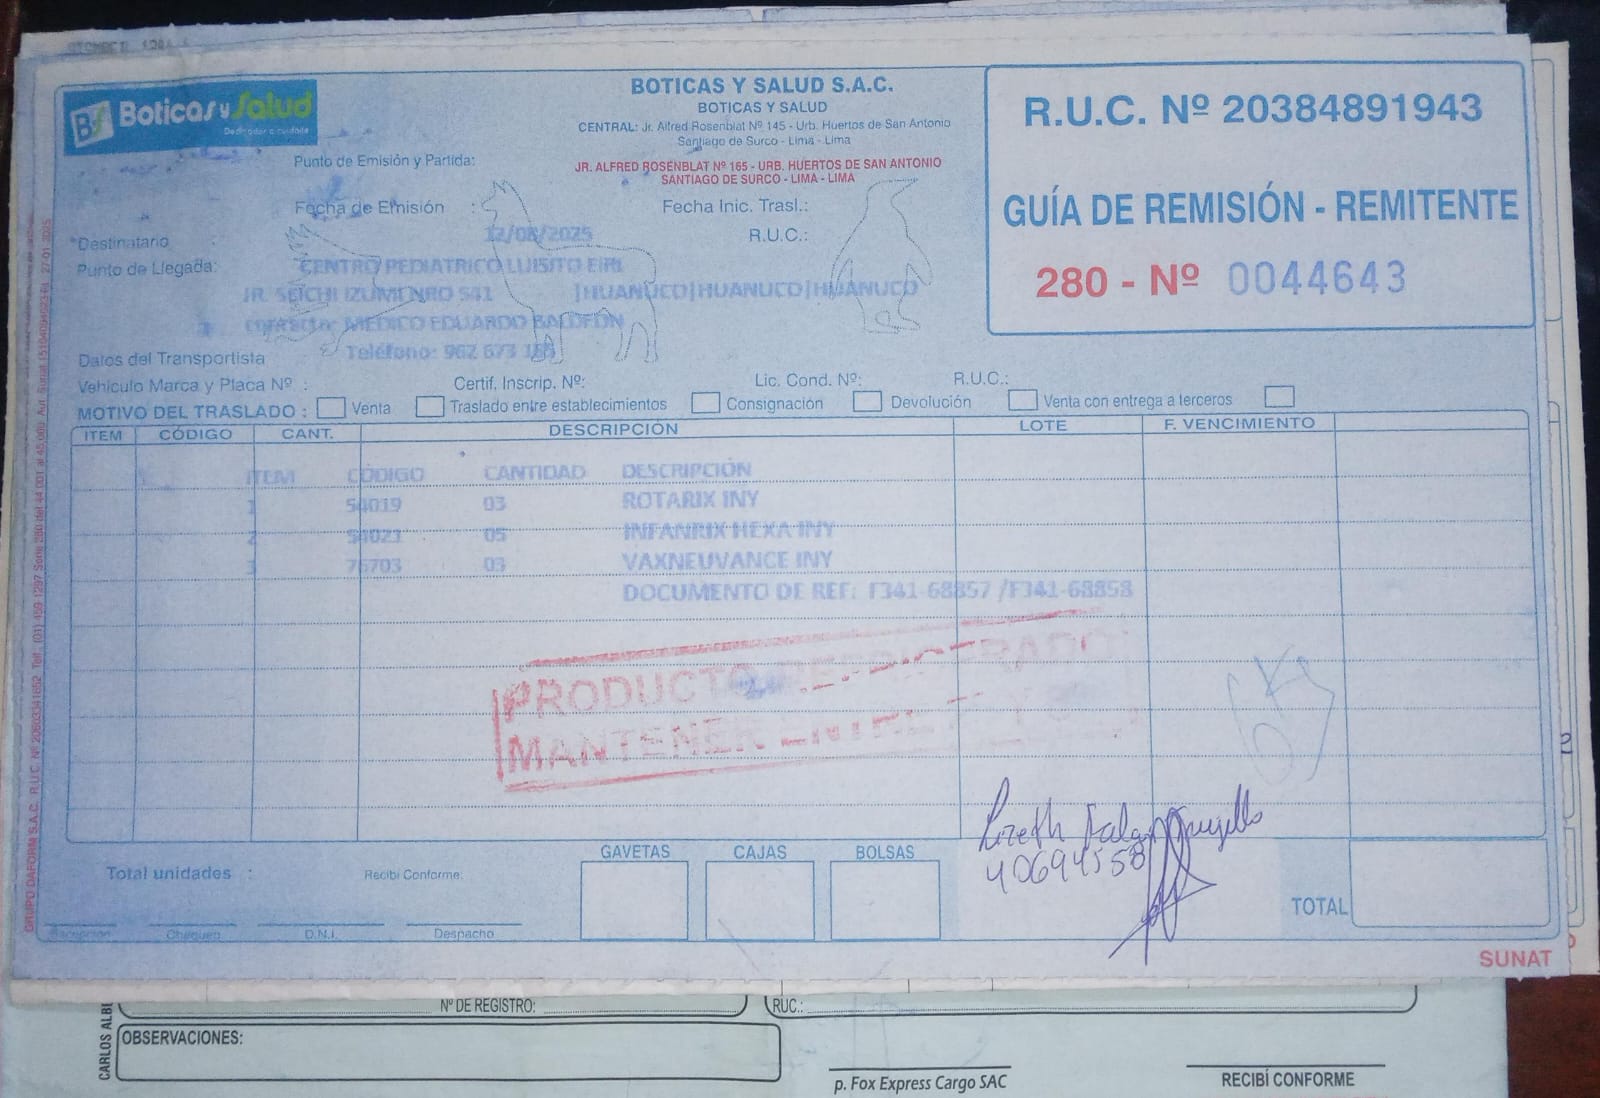 Boticas y Salud
BOTICAS Y SALUD S.A.C.
BOTICAS Y SALUD
CENTRAL: Jr. Alfred Rosenblat Nº 145 - Urb. Huertos de San Antonio
Santiago de Surco - Lima - Lima
Punto de Emisión y Partida:
JR. ALFRED ROSENBLAT Nº 165 - URB. HUERTOS DE SAN ANTONIO
SANTIAGO DE SURCO - LIMA - LIMA
R.U.C. Nº 20384891943
GUÍA DE REMISIÓN - REMITENTE
280 - Nº 0044643
Fecha de Emisión :
Fecha Inic. Trasl.:
12/08/2025
Destinatario :
R.U.C.:
Punto de Llegada:
CENTRO PEDIATRICO LUISITO EIRL
JR. SEICHI IZUMI NRO 541 |HUANUCO|HUANUCO|HUANUCO
MEDICO EDUARDO
Teléfono: 962 673
Datos del Transportista
Vehiculo Marca y Placa Nº :
Certif. Inscrip. Nº:
Lic. Cond. Nº:
R.U.C.:
MOTIVO DEL TRASLADO : Venta Traslado entre establecimientos Consignación Devolución Venta con entrega a terceros
ITEM CÓDIGO CANT. DESCRIPCIÓN LOTE F. VENCIMIENTO
ITEM CÓDIGO CANTIDAD DESCRIPCIÓN
1 54019 03 ROTARIX INY
2 54021 05 INFANRIX HEXA INY
3 76703 03 VAXNEUVANCE INY
DOCUMENTO DE REF: F341-68857 /F341-68858
PRODUCTO REFRIGERADO
MANTENER ENTRE
Lizeth
40694558
GAVETAS CAJAS BOLSAS
Total unidades :
Recibí Conforme:
TOTAL
Recepción Chequeo D.N.I. Despacho
SUNAT
Nº DE REGISTRO:
RUC.:
CARLOS ALBE
OBSERVACIONES:
p. Fox Express Cargo SAC
RECIBÍ CONFORME